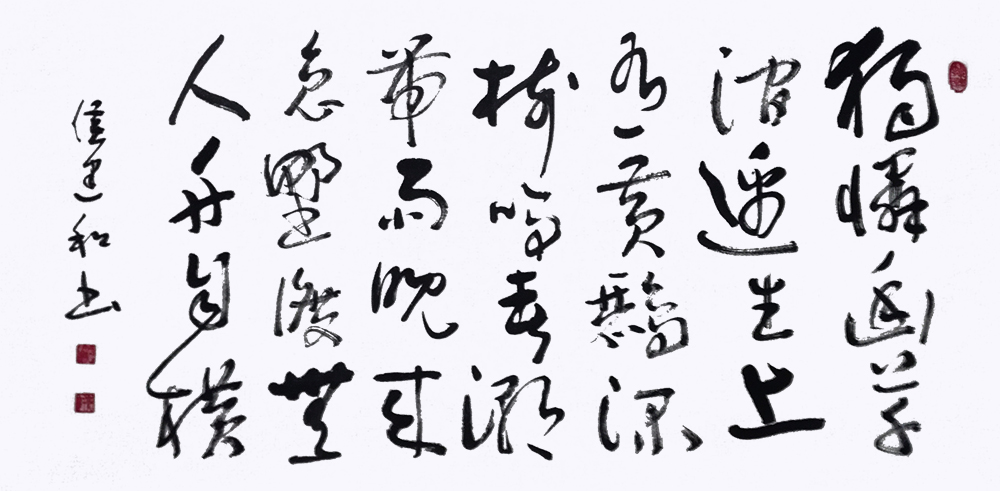 獨憐幽草
澗邊生上
有黄鸝深
樹鳴春潮
帶雨晚來
急野渡無
人舟自橫
和书